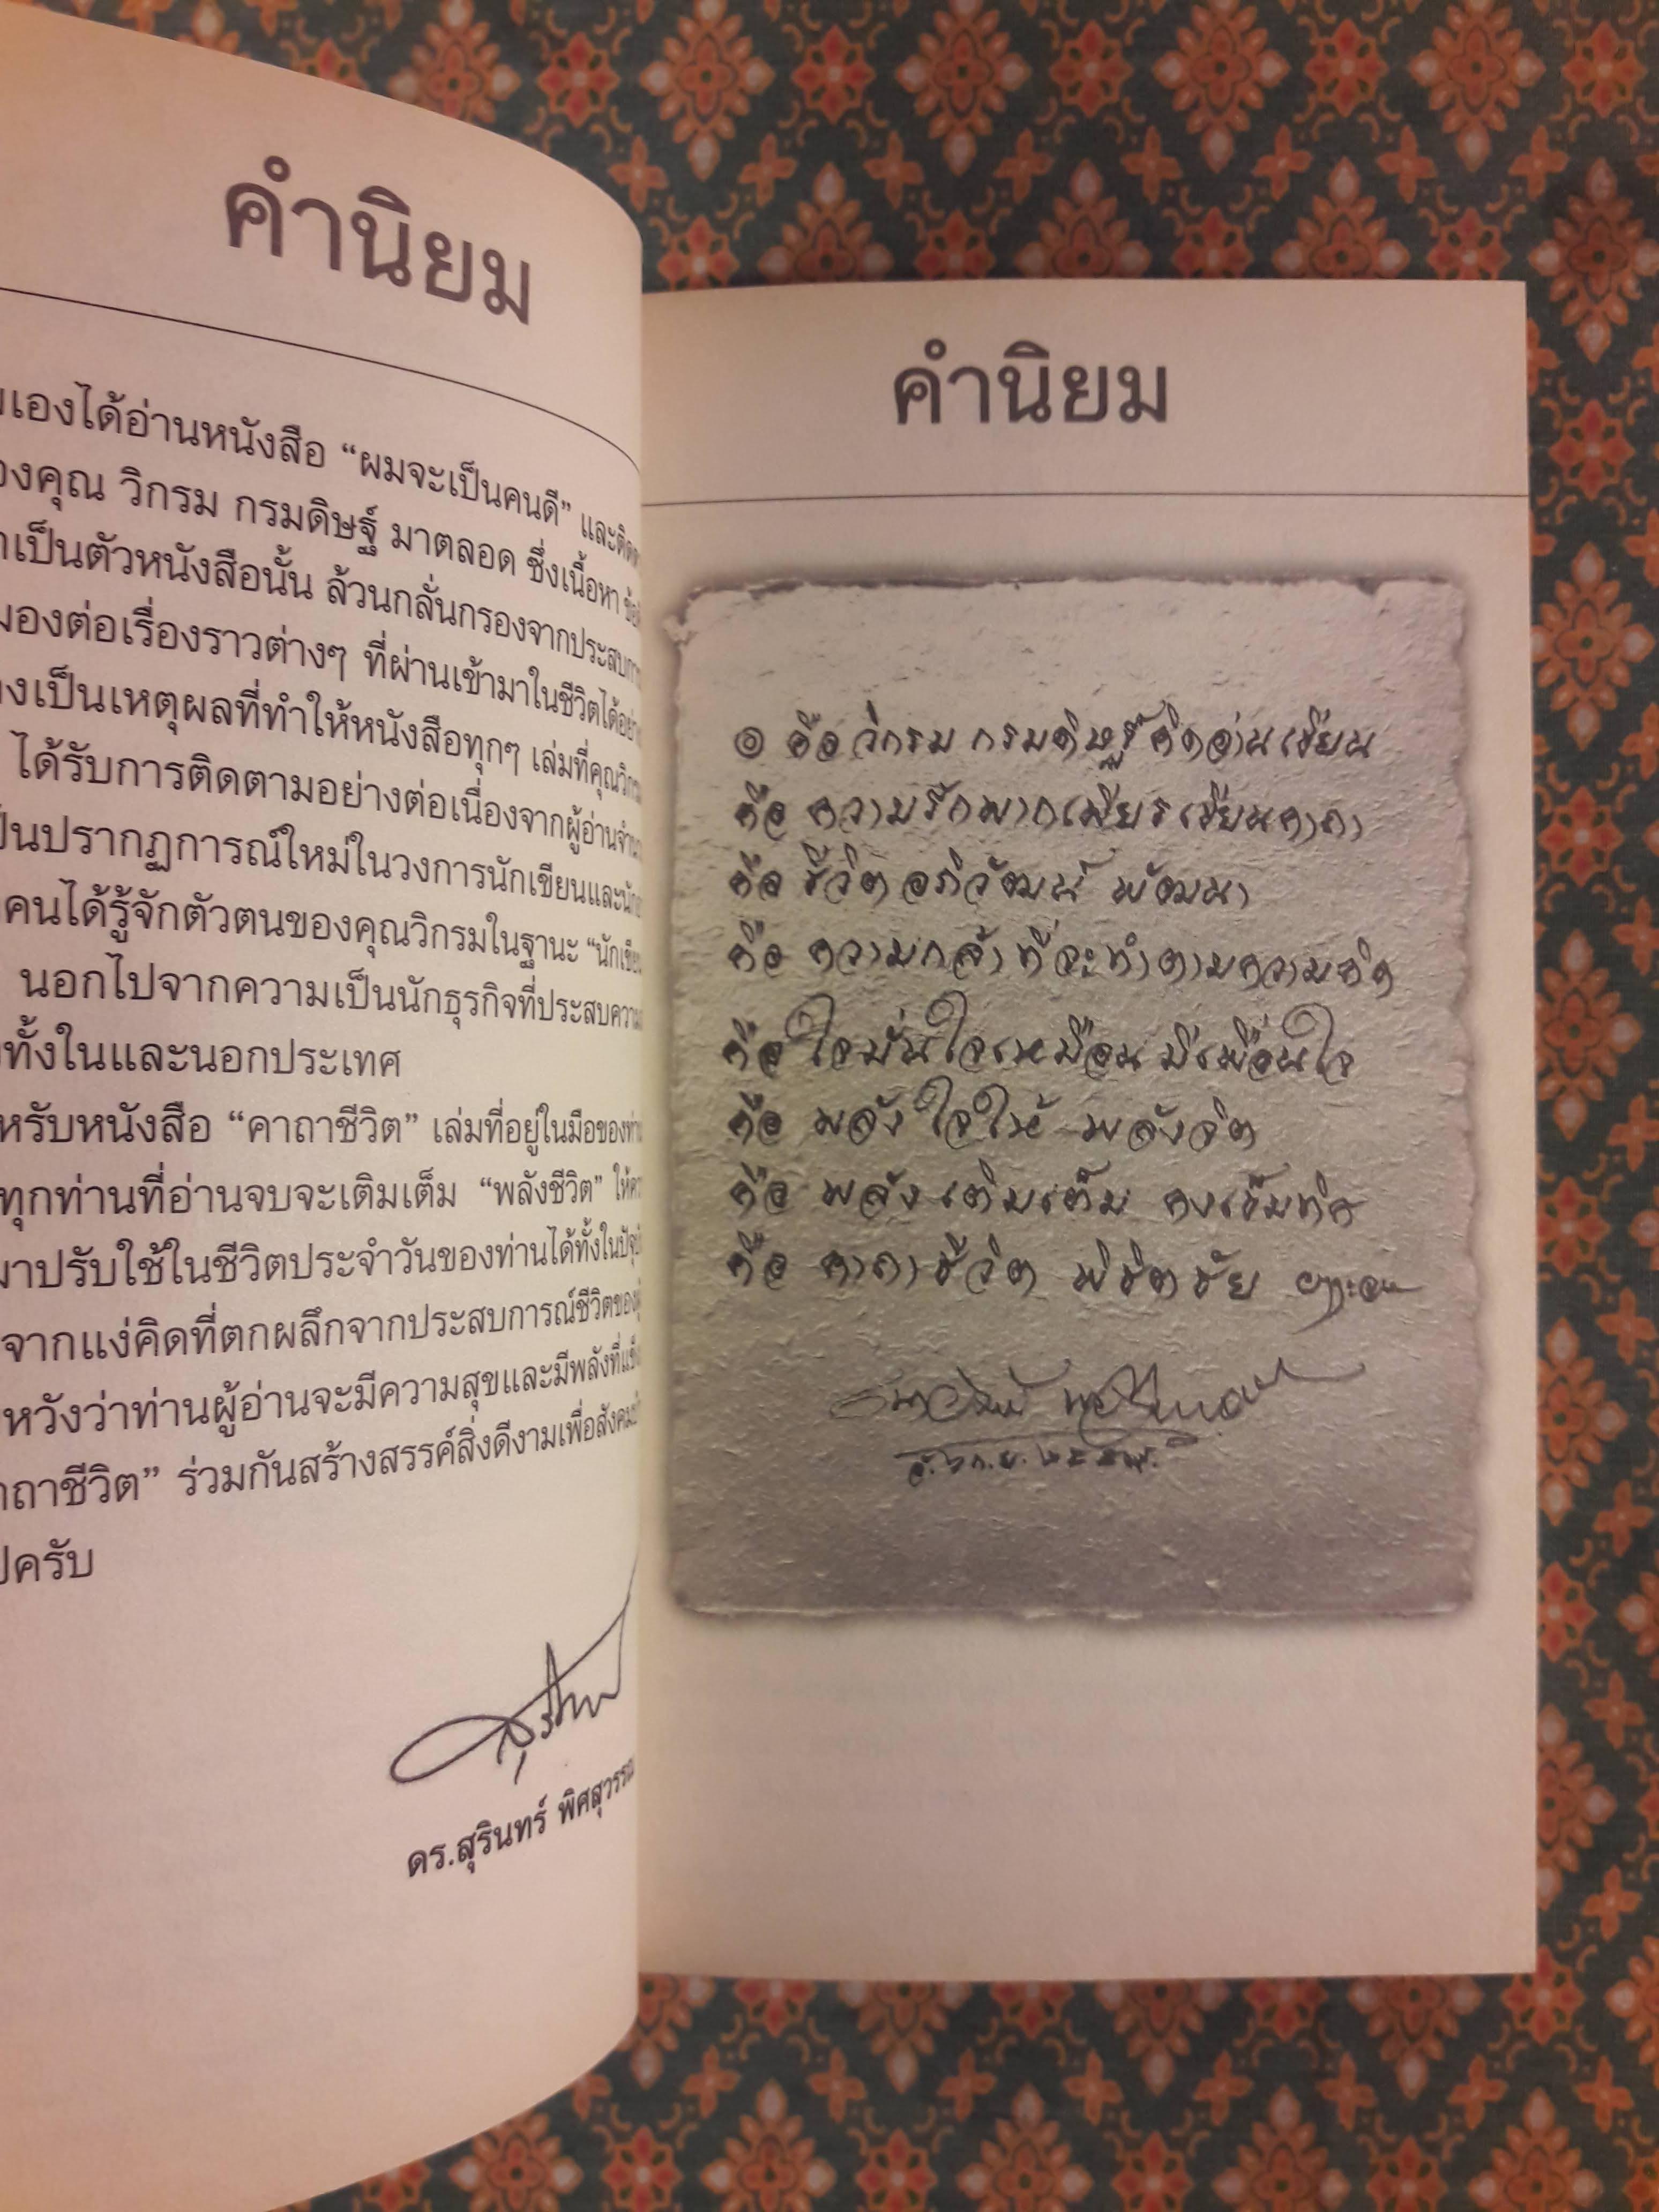 คำนิยม
เองได้อ่านหนังสือ “ผมจะเป็นคนดี” และติด
องคุณ วิกรม กรมดิษฐ์ มาตลอด ซึ่งเนื้อหา
เป็นตัวหนังสือนั้น ล้วนกลั่นกรองจากประสบกา
มองต่อเรื่องราวต่างๆ ที่ผ่านเข้ามาในชีวิตได้อย่า
งเป็นเหตุผลที่ทำให้หนังสือทุกๆ เล่มที่คุณวิกรม
ได้รับการติดตามอย่างต่อเนื่องจากผู้อ่านจำน
ป็นปรากฏการณ์ใหม่ในวงการนักเขียนและนัก
คนได้รู้จักตัวตนของคุณวิกรมในฐานะ “นักเขียน
นอกไปจากความเป็นนักธุรกิจที่ประสบความ
ทั้งในและนอกประเทศ
หรับหนังสือ “คาถาชีวิต” เล่มที่อยู่ในมือของท่าน
ทุกท่านที่อ่านจบจะเติมเต็ม “พลังชีวิต” ให้
มาปรับใช้ในชีวิตประจำวันของท่านได้ทั้งในปัจจุ
จากแง่คิดที่ตกผลึกจากประสบการณ์ชีวิตของ
หวังว่าท่านผู้อ่านจะมีความสุขและมีพลังที่แข็
าถาชีวิต” ร่วมกันสร้างสรรค์สิ่งดีงามเพื่อสังคม
ปครับ
ดร.สุรินทร์ พิศสุวรรณ
คำนิยม
๏ คือ วิกรม กรมดิษฐ์ คิดอ่านเขียน
คือ ความรักพากเพียรเขียนคาถา
คือ ชีวิต อภิวัฒน์ พัฒนา
คือ ความกล้าที่จะทำตามความคิด
คือ ใจมั่นใจเหมือนมีเพื่อนใจ
คือ พลังใจให้ พลังจิต
คือ พลังเติมเต็ม คงเข็มทิศ
คือ คาถาชีวิต พิชิตชัย